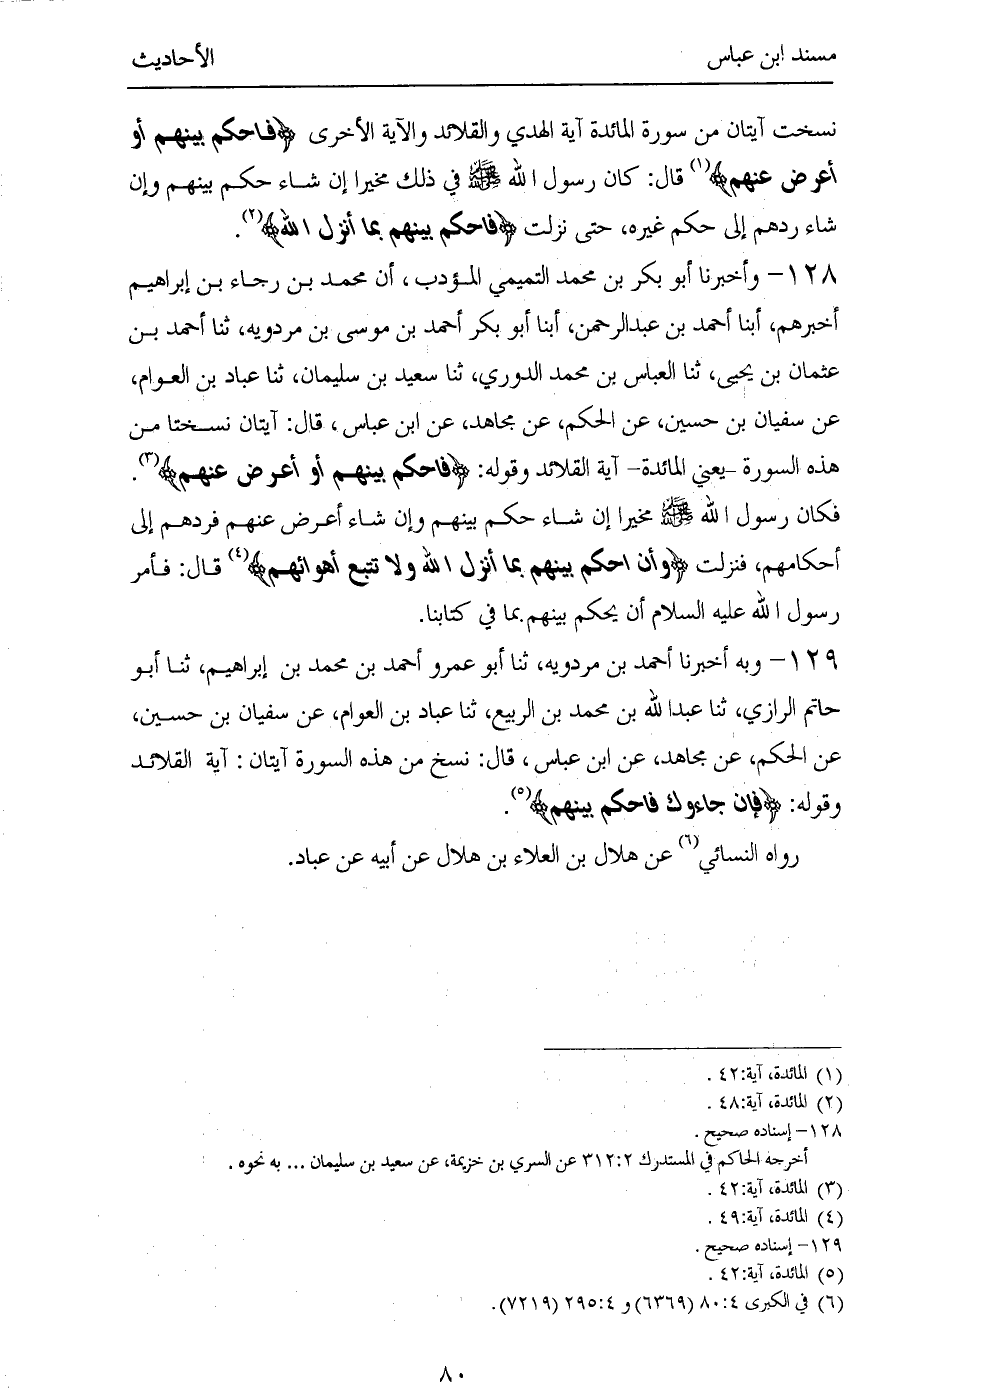 مسند ابن عباس
الأحاديث
نسخت آيتان من سورة المائدة آية الهدي والقلائد والآية الأخرى ﴿فاحكم بينهم أو
أعرض عنهم﴾(١) قال: كان رسول الله ﷺ في ذلك مخيرا إن شاء حكم بينهم وإن
شاء ردهم إلى حكم غيره، حتى نزلت ﴿فاحكم بينهم بما أنزل الله﴾(٢).
١٢٨- وأخبرنا أبو بكر بن محمد التميمي المؤدب، أن محمد بن رجاء بن إبراهيم
أخبرهم، أبنا أحمد بن عبدالرحمن، أبنا أبو بكر أحمد بن موسى بن مردويه، ثنا أحمد بن
عثمان بن يحيى، ثنا العباس بن محمد الدوري، ثنا سعيد بن سليمان، ثنا عباد بن العوام،
عن سفيان بن حسين، عن الحكم، عن مجاهد، عن ابن عباس، قال: آيتان نسختا من
هذه السورة -يعني المائدة- آية القلائد وقوله: ﴿فاحكم بينهم أو أعرض عنهم﴾(٣).
فكان رسول الله ﷺ مخيرا إن شاء حكم بينهم وإن شاء أعرض عنهم فردهم إلى
أحكامهم، فنزلت ﴿وأن احكم بينهم بما أنزل الله ولا تتبع أهوائهم﴾(٤) قال: فأمر
رسول الله عليه السلام أن يحكم بينهم بما في كتابنا.
١٢٩- وبه أخبرنا أحمد بن مردويه، ثنا أبو عمرو أحمد بن محمد بن إبراهيم، ثنا أبو
حاتم الرازي، ثنا عبدالله بن محمد بن الربيع، ثنا عباد بن العوام، عن سفيان بن حسين،
عن الحكم، عن مجاهد، عن ابن عباس، قال: نسخ من هذه السورة آيتان: آية القلائد
وقوله: ﴿فإن جاءوك فاحكم بينهم﴾(٥).
رواه النسائي(٦) عن هلال بن العلاء بن هلال عن أبيه عن عباد.
(١) المائدة، آية:٤٢.
(٢) المائدة، آية:٤٨.
١٢٨- إسناده صحيح.
أخرجه الحاكم في المستدرك ٣١٢:٢ عن السري بن خزيمة، عن سعيد بن سليمان ... به نحوه.
(٣) المائدة، آية:٤٢.
(٤) المائدة، آية:٤٩.
١٢٩- إسناده صحيح.
(٥) المائدة، آية:٤٢.
(٦) في الكبرى ٨٠:٤ (٦٣٦٩) و ٢٩٥:٤ (٧٢١٩).
٨٠